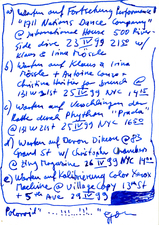 a) Warten auf Fortsetzung Performance
"1911 Nations Dance Company"
@ International House 500 River-
side drive 23 IV 99 21 35 w/
Klaus & Irina Rössle
b) Warten auf Klaus & Irina
Rössle + Antoine Laurie +
Christina Hunter for brunch @
151 W 21st 25 IV 99 NYC 1415
c) Warten auf Verschlingen der
Ratte durch Phython "Prada"
@ 151 W 21st 25 IV 99 NYC 1600
d) Warten auf Devon Dikeou @ 83
Grand St w/ Christoph Chambers
@ Zing Magazine 26 IV 99 NYC 1400
e) Warten auf Kalibrierung Color Xerox
Machine @ Village Copy 13th St
+ 5th Ave 29 IV 99
Polaroids